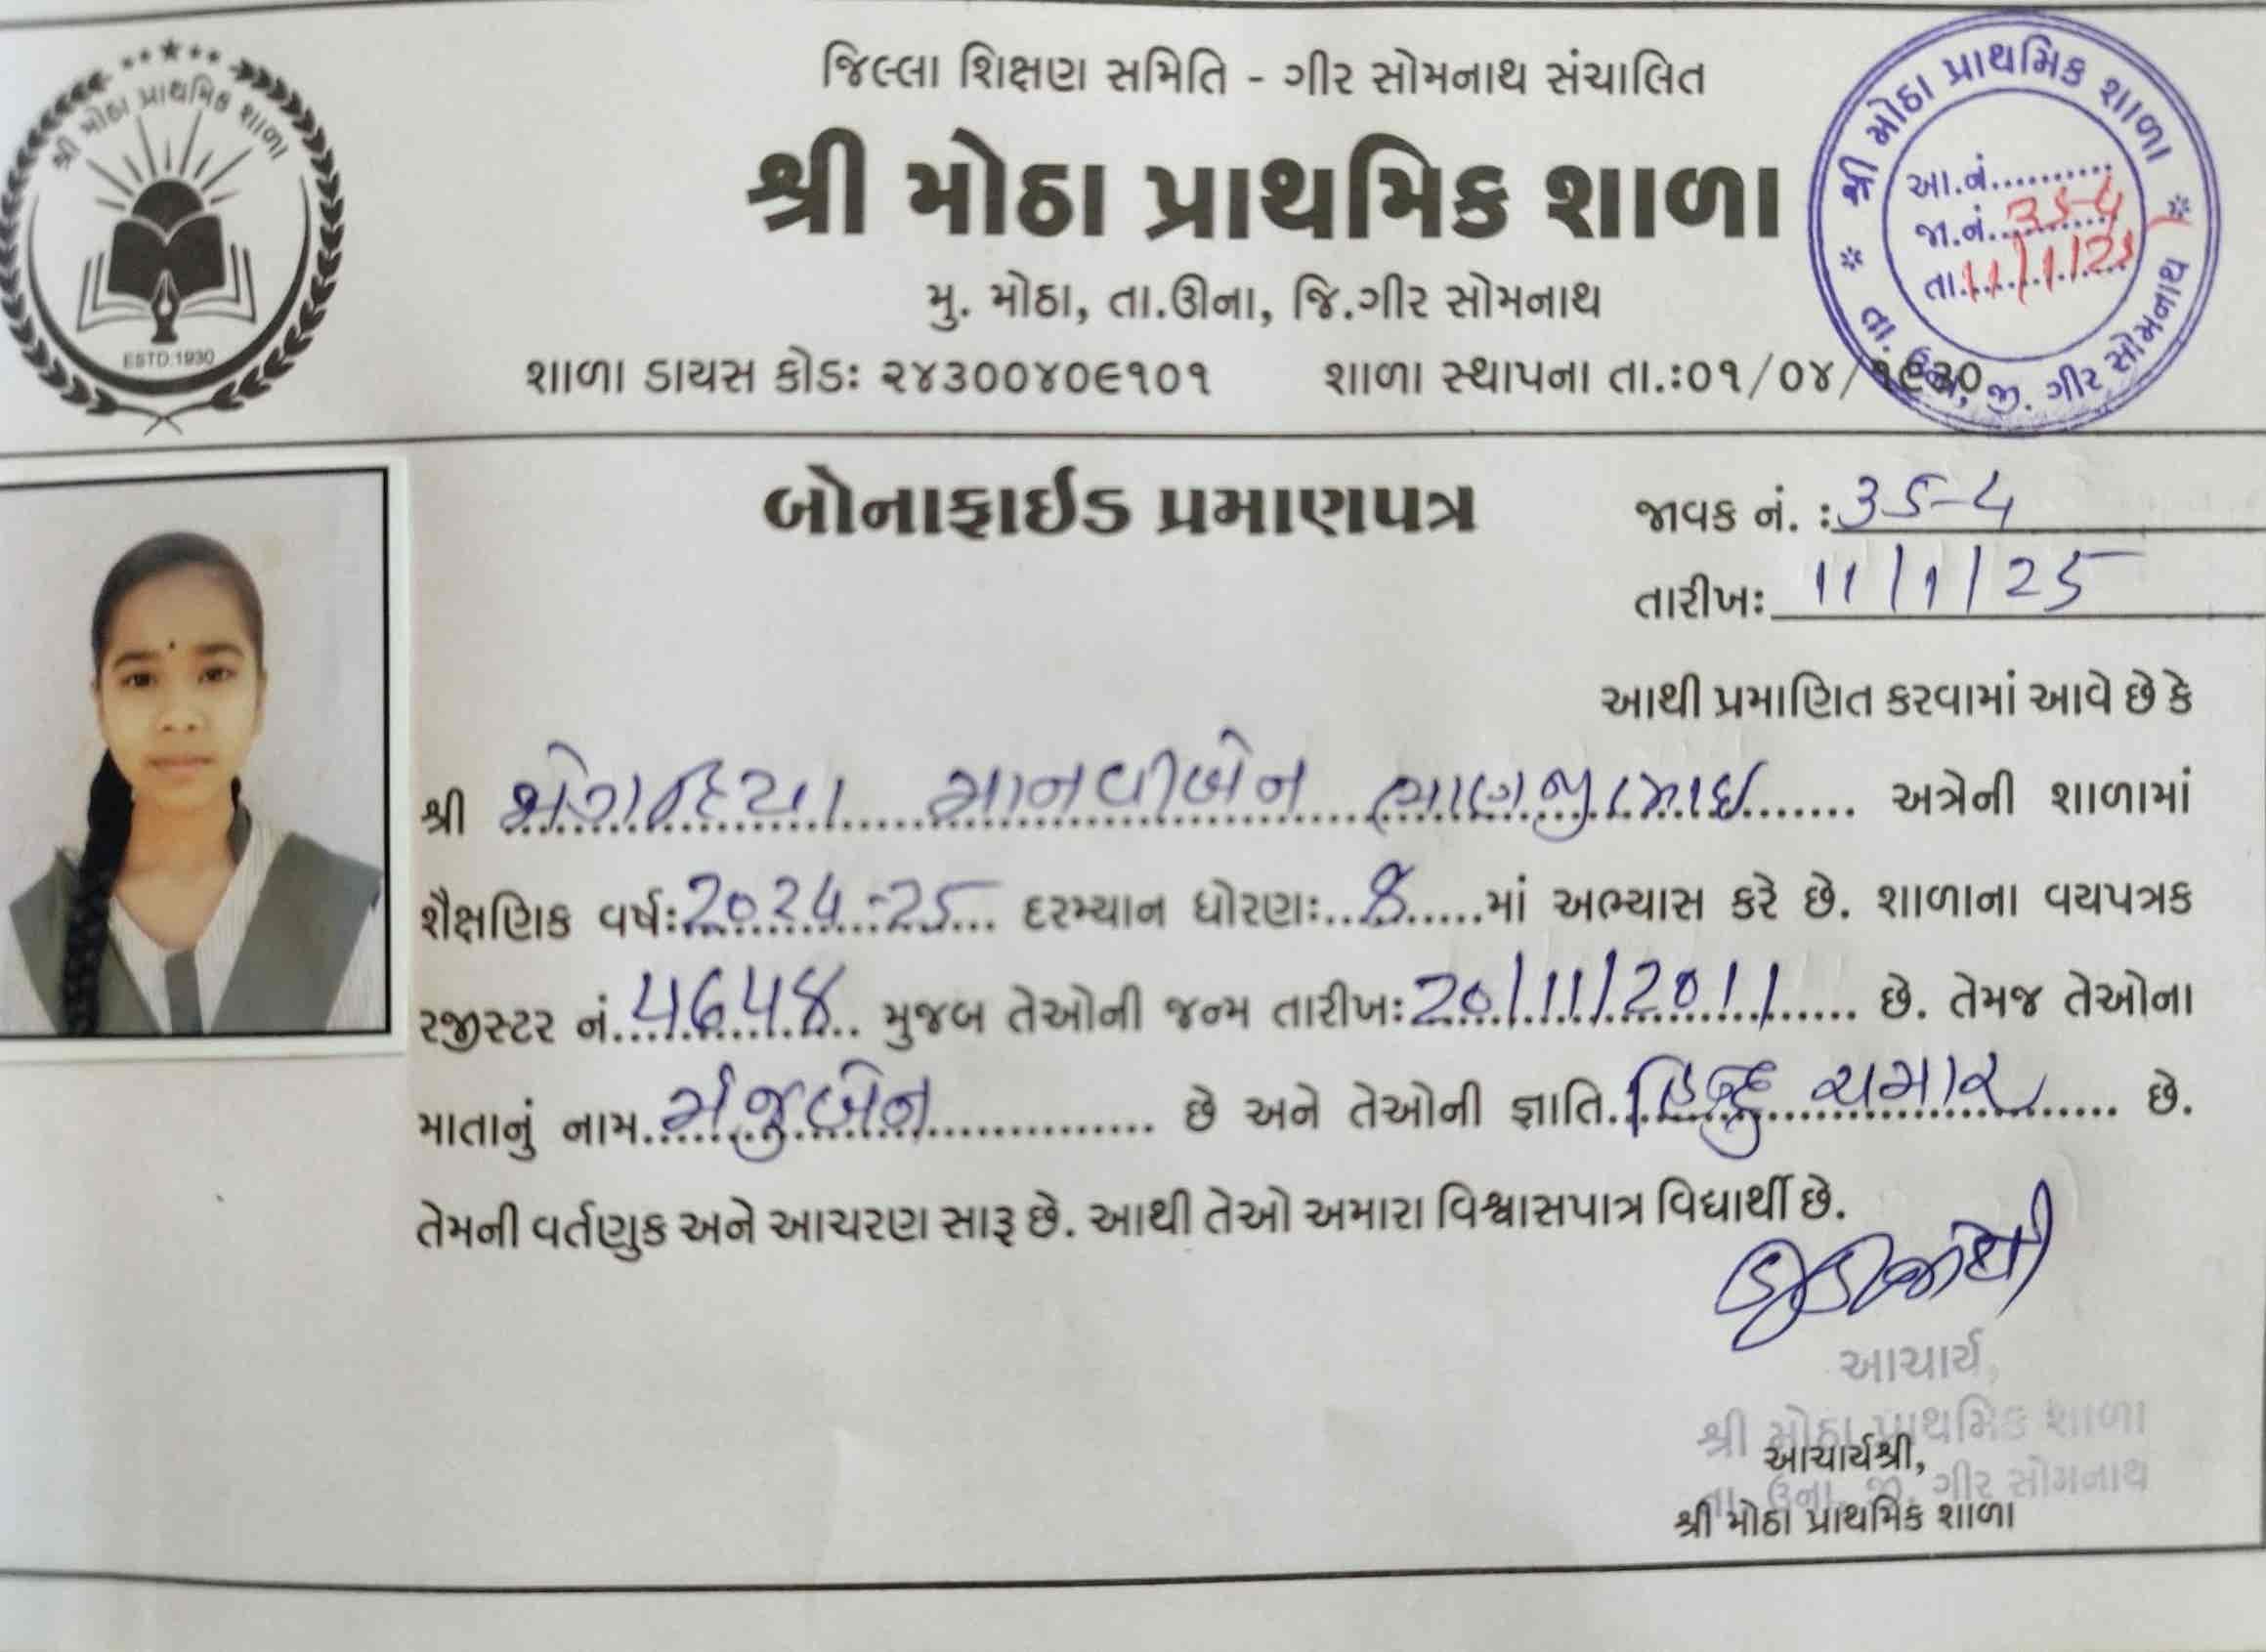 શ્રી મોઠા પ્રાથમિક શાળા
ESTD.1930
જિલ્લા શિક્ષણ સમિતિ - ગીર સોમનાથ સંચાલિત
શ્રી મોઠા પ્રાથમિક શાળા
મુ. મોઠા, તા.ઊના, જિ.ગીર સોમનાથ
શાળા ડાયસ કોડઃ ૨૪૩૦૦૪૦૯૧૦૧ શાળા સ્થાપના તા.ઃ૦૧/૦૪/૧૯૩૦
શ્રી મોઠા પ્રાથમિક શાળા
આ.નં...........
જા.નં. 35-4
તા. 11/1/25
તા. ઉના, જી. ગીર સોમનાથ
બોનાફાઈડ પ્રમાણપત્ર
જાવક નં. : 35-4
તારીખઃ 11/1/25
આથી પ્રમાણિત કરવામાં આવે છે કે
શ્રી માનવીબેન ભાણજીભાઈ અત્રેની શાળામાં
શૈક્ષણિક વર્ષઃ 2024-25 દરમ્યાન ધોરણઃ 8 માં અભ્યાસ કરે છે. શાળાના વયપત્રક
રજીસ્ટર નં. 4648 મુજબ તેઓની જન્મ તારીખઃ 20/11/2011 છે. તેમજ તેઓના
માતાનું નામ મંજુબેન છે અને તેઓની જ્ઞાતિ હિન્દુ ચમાર છે.
તેમની વર્તણુક અને આચરણ સારૂ છે. આથી તેઓ અમારા વિશ્વાસપાત્ર વિદ્યાર્થી છે.
આચાર્ય,
શ્રી મોઠા પ્રાથમિક શાળા
તા. ઉના, જી. ગીર સોમનાથ
આચાર્યશ્રી,
શ્રી મોઠા પ્રાથમિક શાળા